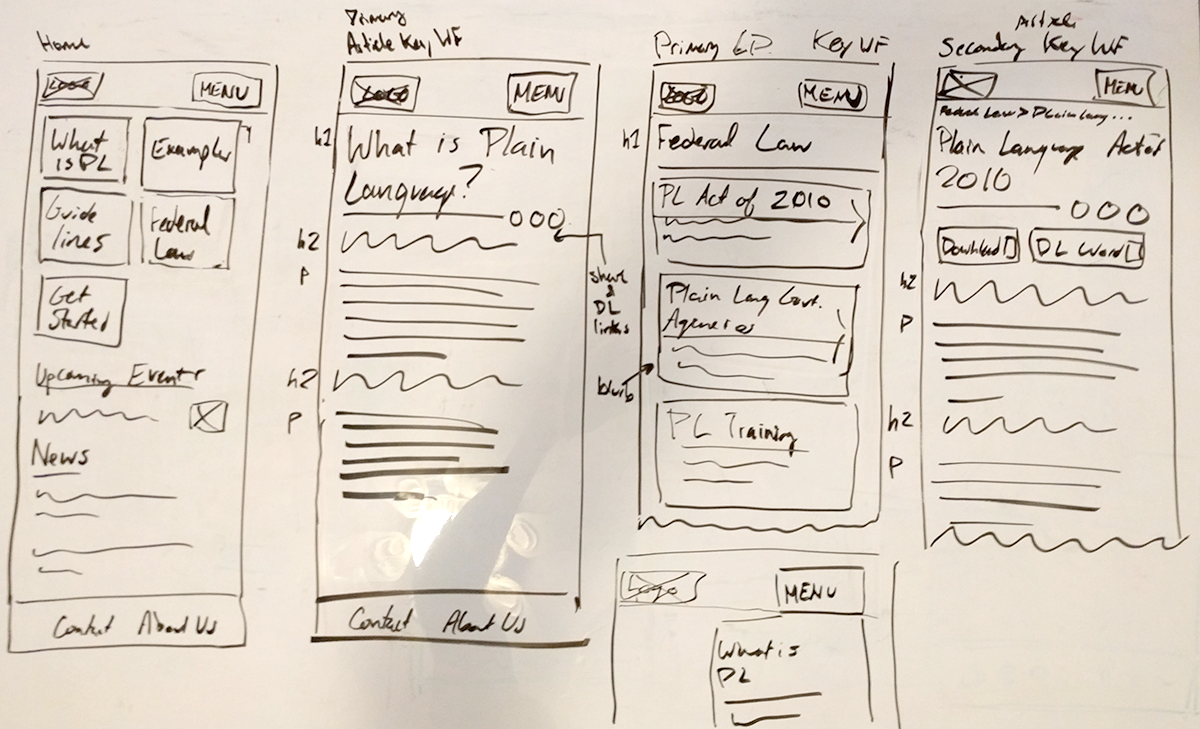 Home
LOGO
MENU
What
is PL
Examples
Guide
lines
Federal
Law
Get
Started
Upcoming Events
News
Contact About Us
Primary
Article Key WF
LOGO
MENU
h1
What is Plain
Language?
h2
P
share
&
DL
links
h2
P
Contact About Us
Primary LP Key WF
LOGO
MENU
h1
Federal Law
PL Act of 2010
Plain Lang Govt.
Agencies
blurb
PL Training
Logo
MENU
What is
PL
Article
Secondary Key WF
MENU
Federal Law > Plain Lang...
Plain Language Act of
2010
Download
DL Word
h2
P
h2
P